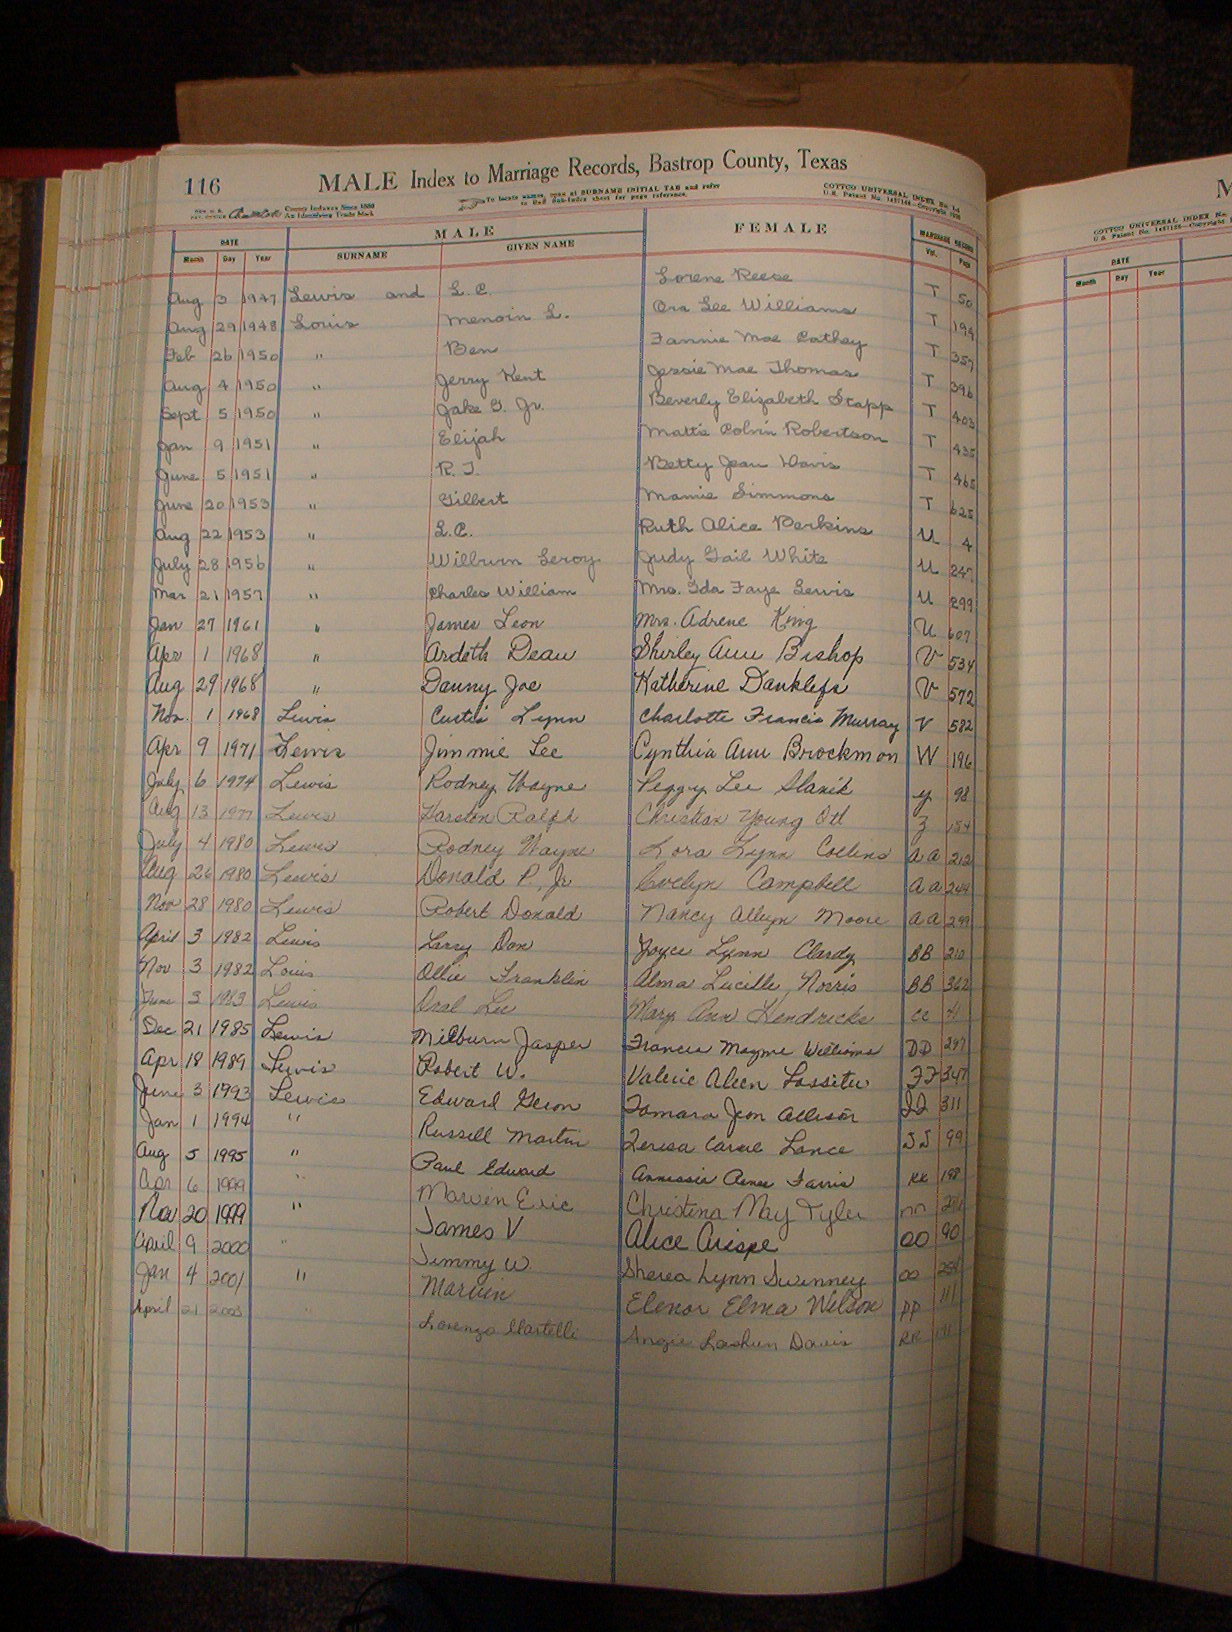 116 MALE Index to Marriage Records, Bastrop County, Texas
REG. U.S. PAT. OFFICE County Indexes Since 1888 An Identifying Trade Mark To locate names, open at SURNAME INITIAL TAB and refer to Said Sub-Index sheet for page reference. COTTCO UNIVERSAL INDEX U.S. Patent No. 1487156—Copyright
DATE MALE FEMALE MARRIAGE RECORD
Month Day Year SURNAME GIVEN NAME Vol. Page
Aug 3 1947 Lewis and L.C. Lorene Reese T 50
Aug 29 1948 Louis Menoin L. Ora Lee Williams T 194
Feb 26 1950 " Ben Fannie Mae Cathey T 357
Aug 4 1950 " Jerry Kent Jessie Mae Thomas T 396
Sept 5 1950 " Jake G. Jr. Beverly Elizabeth Stapp T 403
Jan 9 1951 " Elijah Mattie Colvin Robertson T 435
June 5 1951 " R.J. Betty Jean Davis T 465
June 20 1953 " Gilbert Mamie Simmons T 625
Aug 22 1953 " L.C. Ruth Alice Perkins U 4
July 28 1956 " Wilburn Leroy Judy Gail White U 247
Mar 21 1957 " Charles William Mrs. Ida Faye Lewis U 299
Jan 27 1961 " James Leon Mrs. Adrene King U 607
Apr 1 1968 " Ardeth Dean Shirley Ann Bishop V 534
Aug 29 1968 " Danny Joe Katherine Danklefs V 572
Nov. 1 1968 Lewis Curtis Lynn Charlotte Francis Murray V 582
Apr 9 1971 Lewis Jimmie Lee Cynthia Ann Brockmon W 196
July 6 1974 Lewis Rodney Wayne Peggy Lee Slanik Y 98
Aug 13 1977 Lewis Harston Ralph Christian Young Ott Z 154
July 4 1980 Lewis Rodney Wayne Lora Lynn Collins AA 212
Aug 26 1980 Lewis Donald P., Jr Evelyn Campbell AA 244
Nov 28 1980 Lewis Robert Donald Nancy Allyn Moore AA 299
April 3 1982 Lewis Larry Don Joyce Lynn Clardy BB 210
Nov 3 1982 Louis Ollie Franklin Alma Lucille Norris BB 362
June 3 1983 Lewis Oral Lee Mary Ann Hendricks CC
Dec 21 1985 Lewis Milburn Jasper Francis Mayme Williams DD 297
Apr 18 1989 Lewis Robert W. Valerie Aleen Lossitu FF 347
June 3 1993 Lewis Edward Geron Tamara Jeon Allison II 311
Jan 1 1994 " Russell Martin Teresa Carole Lance JJ 99
Aug 5 1995 " Paul Edward Farris KK 198
Apr 6 1999 " Marvin Eric Christina May Tyler nn
Nov 20 1999 " James V Alice Crispe OO 90
April 9 2000 " Jimmy W. Sherea Lynn Swinney OO 254
Jan 4 2001 " Marvin Elenor Elma Wilson PP 111
April 21 Lorenzo Martelli Angie Lashun Davis RR
COTTCO UNIVERSAL INDEX No.
U.S. Patent No. 1487156—Copyright
DATE
Month Day Year